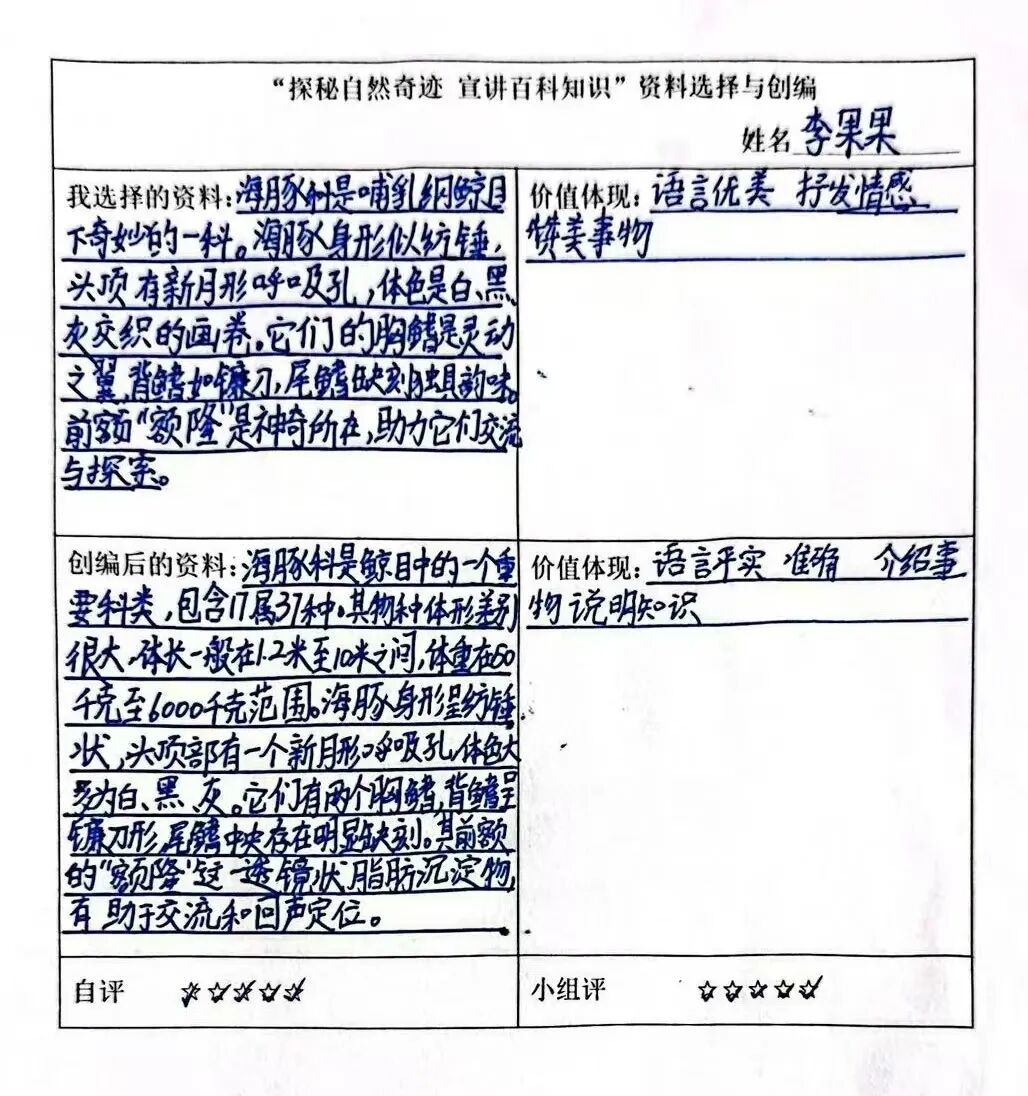 “探秘自然奇迹 宣讲百科知识”资料选择与创编
姓名 李果果
我选择的资料:海豚科是哺乳纲鲸目
下奇妙的一科。海豚身形似纺锤,
头顶有新月形呼吸孔,体色是白、黑、
灰交织的画卷。它们的胸鳍是灵动
之翼,背鳍如镰刀,尾鳍缺刻独具韵味。
前额“额隆”是神奇所在,助力它们交流
与探索。
价值体现:语言优美 抒发情感
赞美事物
创编后的资料:海豚科是鲸目中的一个重
要科类,包含17属37种。其物种体形差别
很大,体长一般在1.2米至10米之间,体重在50
千克至6000千克范围。海豚身形呈纺锤
状,头顶部有一个新月形呼吸孔,体色大
多为白、黑、灰。它们有两个胸鳍,背鳍呈
镰刀形,尾鳍中央存在明显缺刻。其前额
的“额隆”这一透镜状脂肪沉淀物,
有助于交流和回声定位。
价值体现:语言平实 准确 介绍事
物 说明知识
自评 ☆☆☆☆☆
小组评 ☆☆☆☆☆